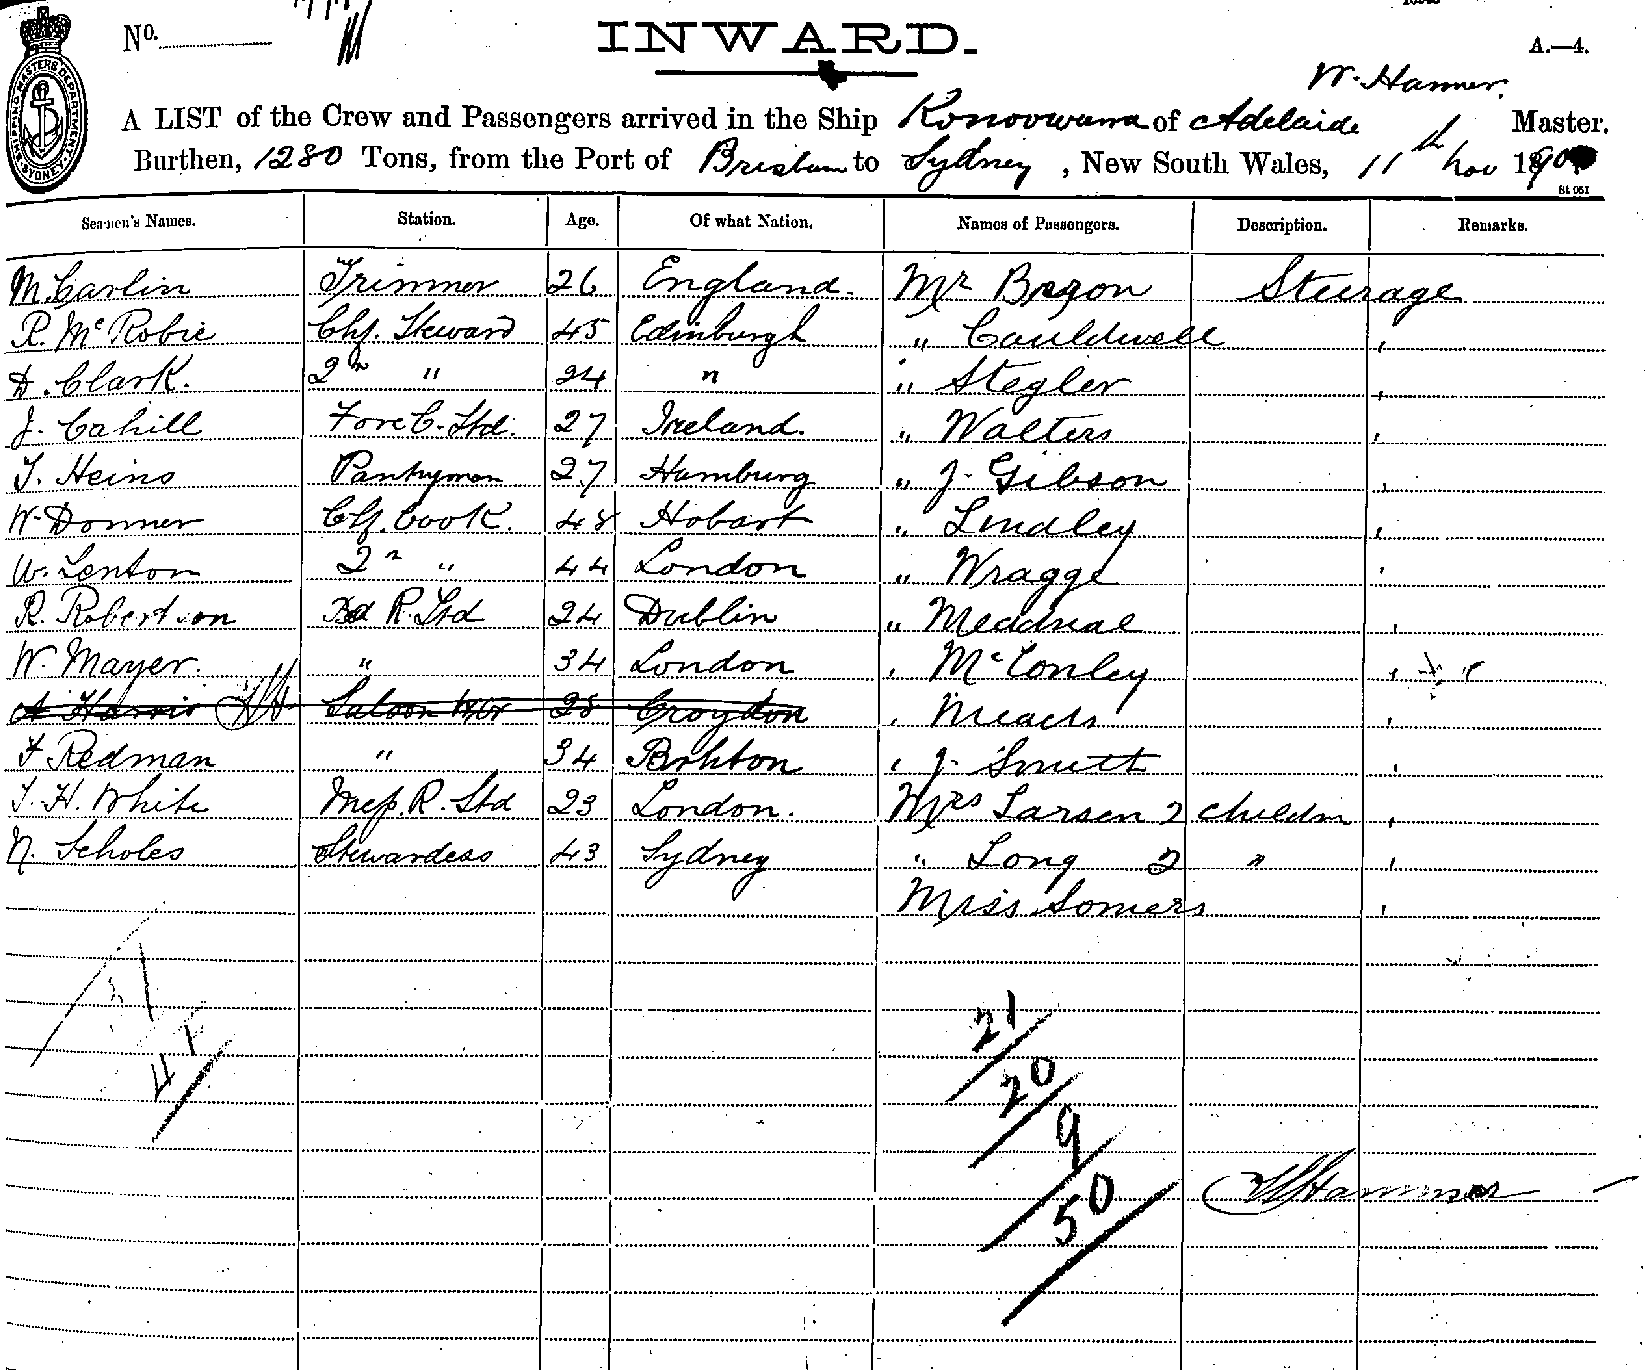 No.
INWARD.
A.—4.
W. Hammer.
A LIST of the Crew and Passengers arrived in the Ship Konoowarra of Adelaide Master.
Burthen, 1280 Tons, from the Port of Brisbane to Sydney, New South Wales, 11th Nov 190
SHIPPING MASTERS DEPARTMENT SYDNEY
Seamen's Names. Station. Age. Of what Nation. Names of Passengers. Description. Remarks.
M. Carlin Trimmer 26 England. Mr Steerage
R. McRobie Chf. Steward 45 Edinburgh " Cauldwell "
D. Clark. 2nd " 24 " " Stegler "
J. Cahill Fore C. Std. 27 Ireland. " Walters "
T. Heins Pantryman 27 Hamburg " J. Gibson "
W. Donner Chf. Cook. 48 Hobart " Lindley "
W. Lenton 2nd " 44 London " Wragge "
R. Robertson R. Std 24 Dublin " "
W. Mayer. " 34 London " McConley "
A Harris Saloon Wtr 28 Croydon " "
F Redman " 34 " J. Smith "
T. H. White Mess. R. Std 23 London. Mrs Larsen 2 Childrn "
N. Scholes Stewardess 43 Sydney " Long 2 " "
Miss Somers "
21
20
9
50
W Hammer